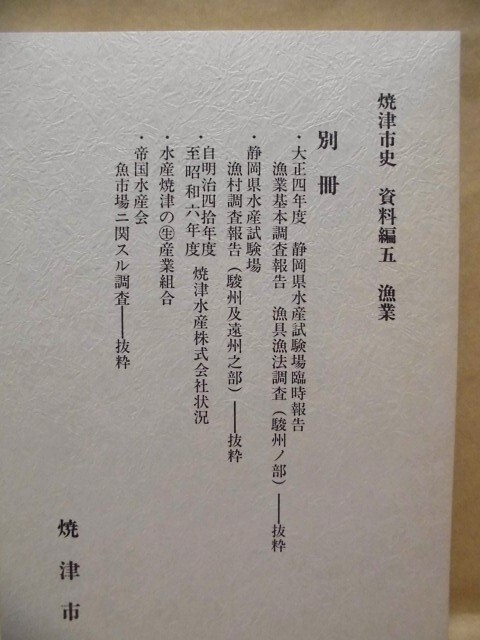 焼津市史 資料編五 漁業
別冊
・大正四年度 静岡県水産試験場臨時報告
漁業基本調査報告 漁具漁法調査（駿州ノ部）――抜粋
・静岡県水産試験場
漁村調査報告（駿州及遠州之部）――抜粋
・自明治四拾年度
至昭和六年度 焼津水産株式会社状況
・水産焼津の㊤産業組合
・帝国水産会
魚市場ニ関スル調査――抜粋
焼津市